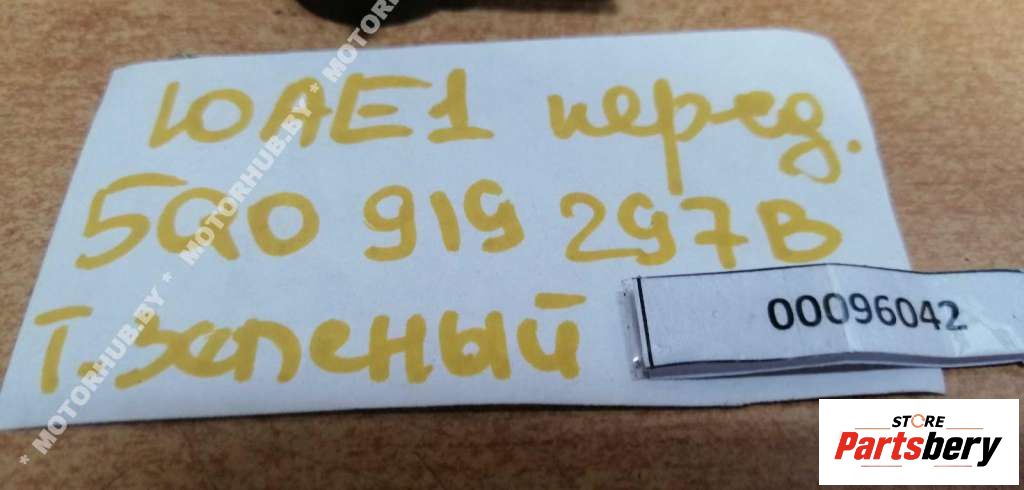 10AE1 перед.
5Q0 919 297 B
Т. зеленый
00096042
* MOTORHUB.BY * MOTORHUB.BY * MOTORHUB.BY
STORE
Partsbery